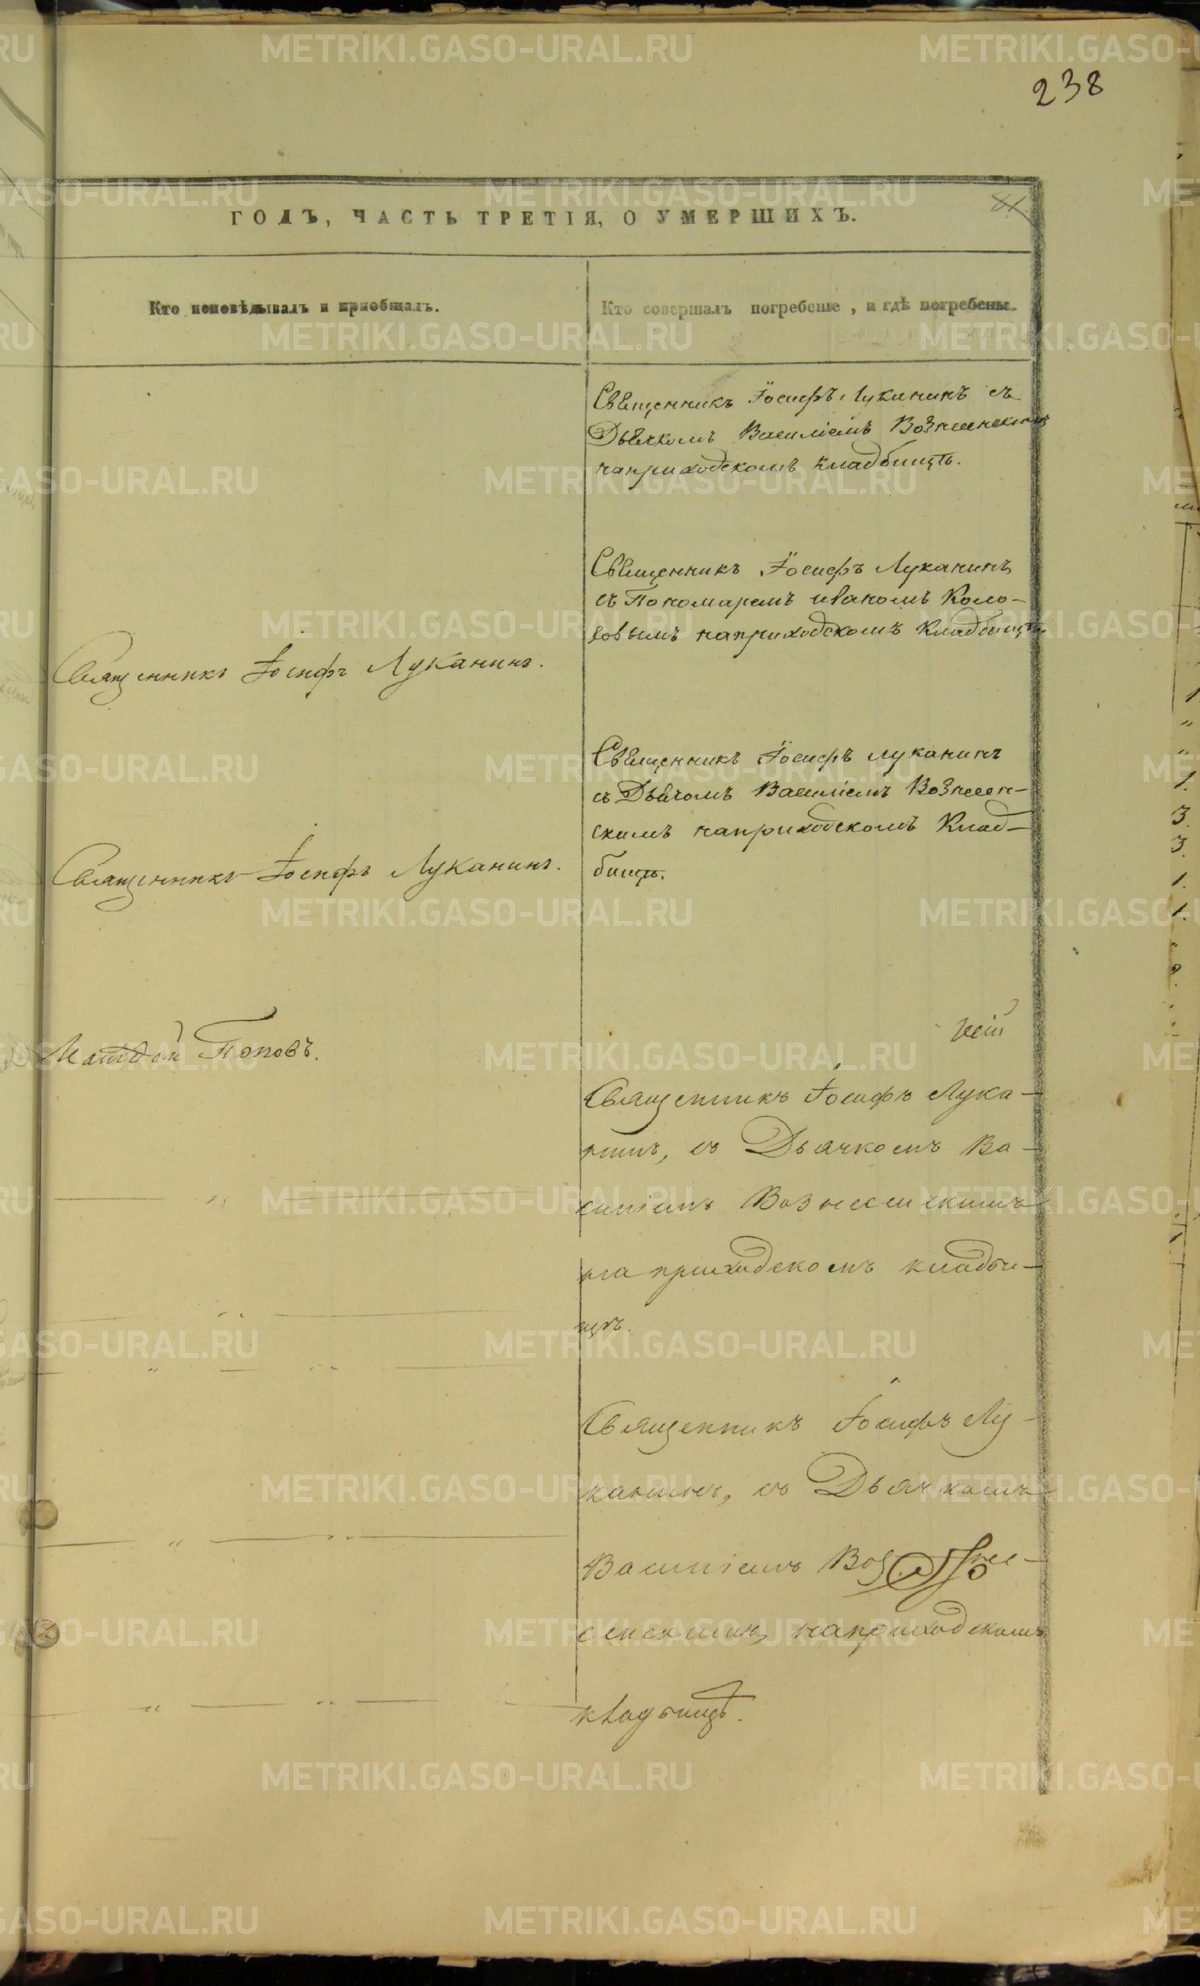 238
ГОДЪ, ЧАСТЬ ТРЕТІЯ, О УМЕРШИХЪ.
Кто исповѣдывалъ и приобщалъ.
Кто совершалъ погребеніе, и гдѣ погребены.
Священникъ Іосифъ Луканинъ съ
Дьячкомъ Василіемъ Вознесенскимъ
наприходскомъ кладбищѣ.
Священникъ Іосифъ Луканинъ
съ Пономаремъ иваномъ Коло-
совымъ наприходскомъ Кладбищѣ
Священникъ Іосифъ Луканинъ.
Священникъ Іосифъ Луканинъ
съ Дьячкомъ Василіемъ Вознесен-
скимъ наприходскомъ Клад-
бищѣ.
Священникъ Іосифъ Луканинъ.
Матвей Поповъ.
Священникъ Іосифъ Лука-
нинъ, съ Дьячкомъ Ва-
силіемъ Вознесенскимъ
на приходскомъ кладби-
щѣ.
Священникъ Іосифъ Лу-
канинъ, съ Дьячкомъ
Василіемъ Возне-
сенскимъ, наприходскомъ
кладбищѣ.
METRIKI.GASO-URAL.RU